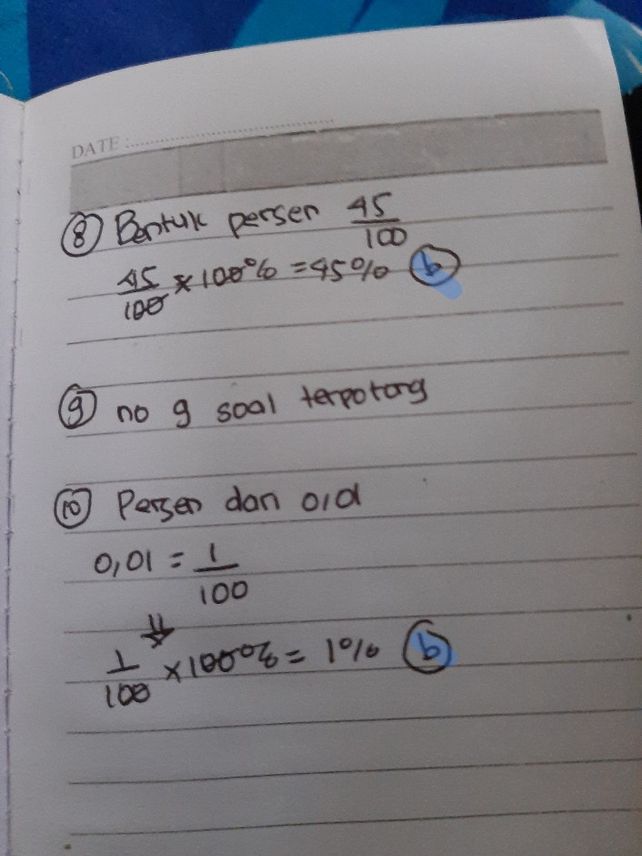 DATE :
8 Bentuk persen 45/100
45/100 × 100% = 45% b
9 no 9 soal terpotong
10 Persen dari 0,01
0,01 = 1/100
1/100 × 100% = 1% b